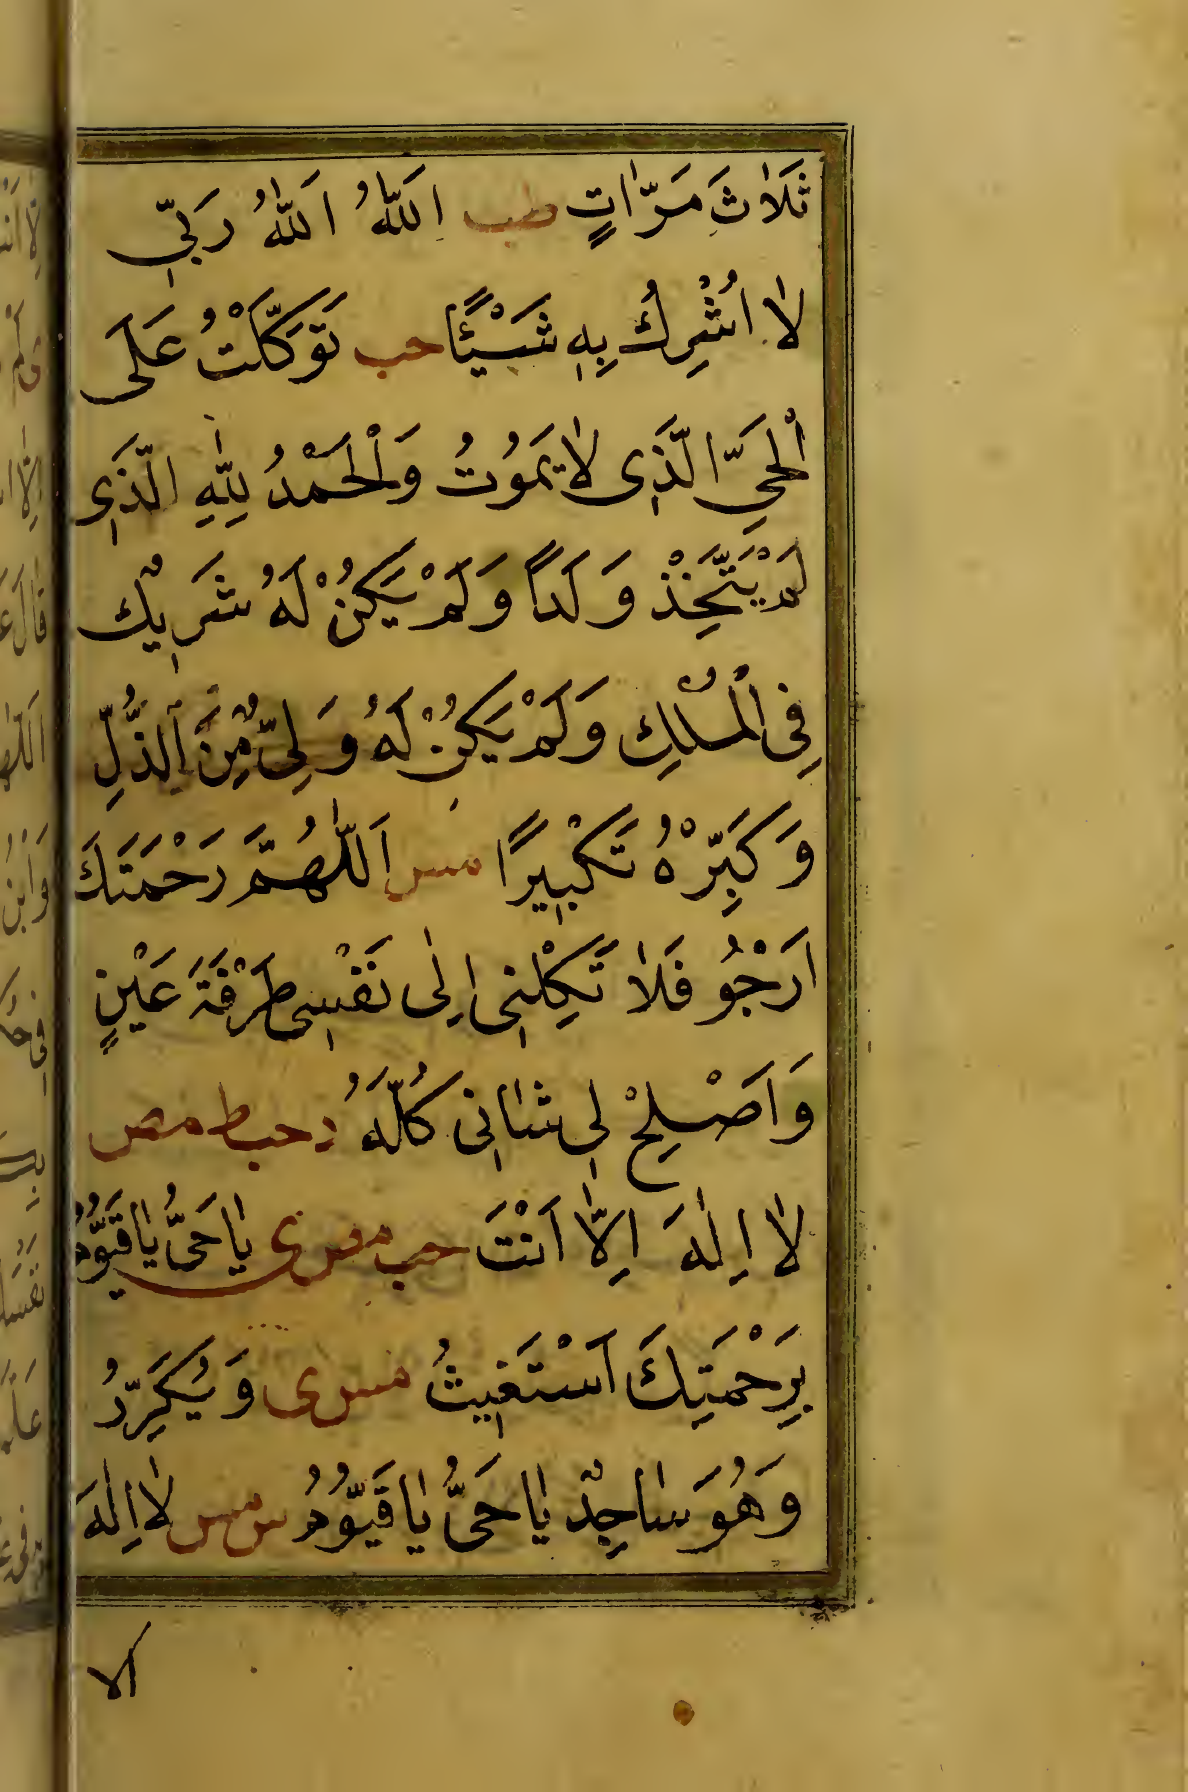 ثَلَاثَ مَرَّاتٍ طب اَللّٰهُ اَللّٰهُ رَبّٖى
لَا اُشْرِكُ بِهٖ شَيْئًا حب تَوَكَّلْتُ عَلَى
الْحَىِّ الَّذٖى لَا يَمُوتُ وَالْحَمْدُ لِلّٰهِ الَّذٖى
لَمْ يَتَّخِذْ وَلَدًا وَلَمْ يَكُنْ لَهُ شَرٖيكٌ
فِى الْمُلْكِ وَلَمْ يَكُنْ لَهُ وَلِىٌّ مِنَ الذُّلِّ
وَكَبِّرْهُ تَكْبٖيرًا مس اَللّٰهُمَّ رَحْمَتَكَ
اَرْجُو فَلَا تَكِلْنٖى اِلٰى نَفْسٖى طَرْفَةَ عَيْنٍ
وَاَصْلِحْ لٖى شَاْنٖى كُلَّهُ د حب ط مص
لَا اِلٰهَ اِلَّا اَنْتَ حب مص ى يَا حَىُّ يَا قَيُّومُ
بِرَحْمَتِكَ اَسْتَغٖيثُ مس ى وَيُكَرِّرُ
وَهُوَ سَاجِدٌ يَا حَىُّ يَا قَيُّومُ س مس لَا اِلٰهَ
الا